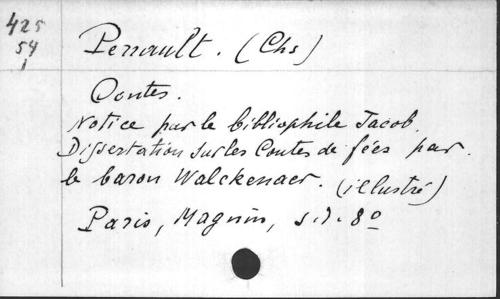 425
54
1
Perrault. (Chs)
Contes.
Notice par le bibliophile Jacob.
Dissertation sur les Contes de fées par
le baron Walckenaer. (illustré)
Paris, Magnin, s.d. 8º